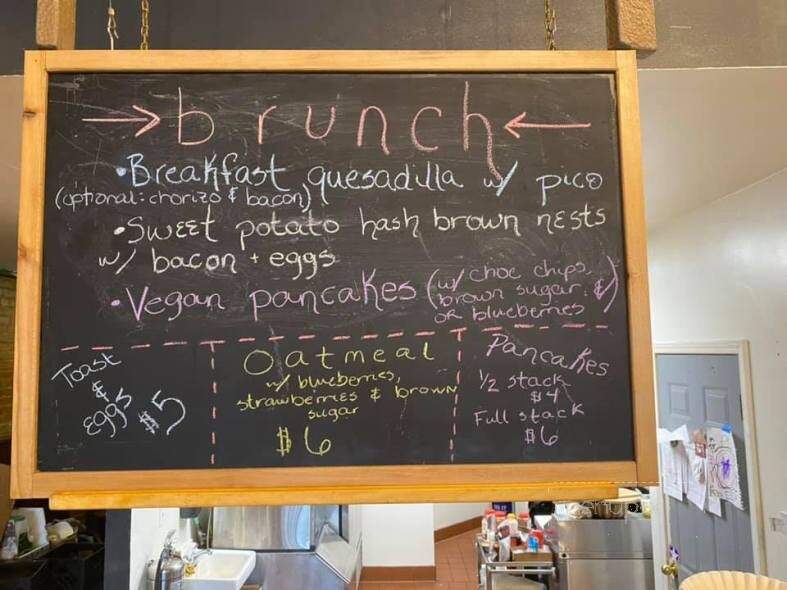 → brunch ←
•Breakfast quesadilla w/ pico
(optional: chorizo & bacon)
•Sweet potato hash brown nests
w/ bacon + eggs
•Vegan pancakes (w/ choc chips,
brown sugar, &
or blueberries)
Toast
&
eggs
$5
Oatmeal
w/ blueberries,
strawberries & brown
sugar
$6
Pancakes
1/2 stack
$4
Full stack
$6